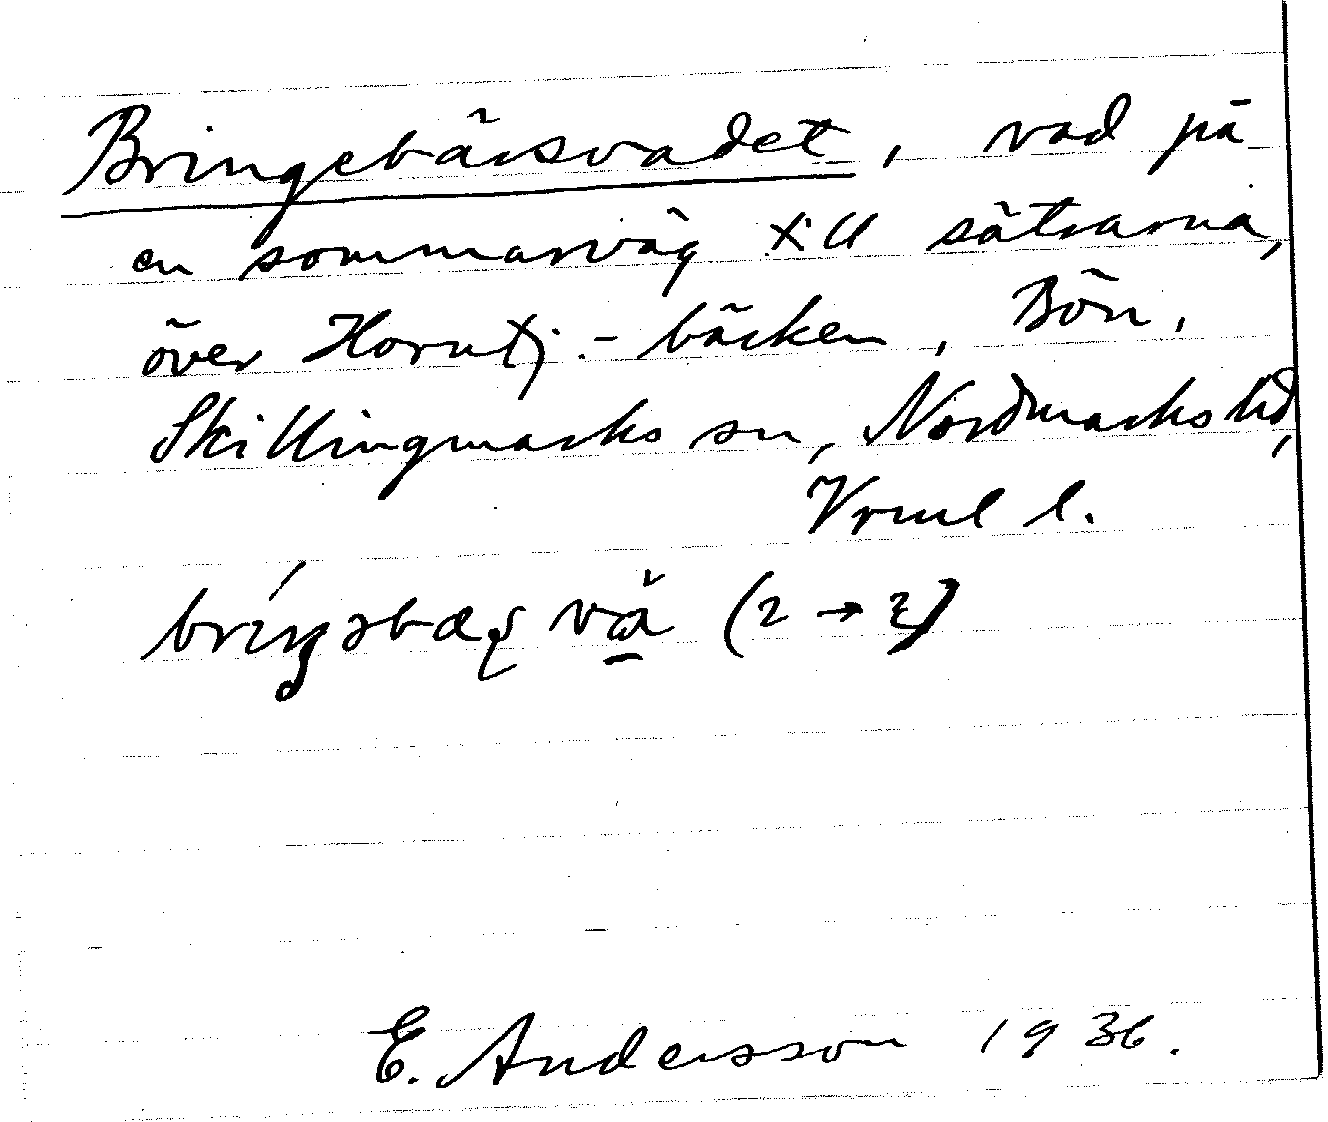 Bringebärsvadet, vad på
en sommarväg till sätrarna,
över Horntj.-bäcken, Bön,
Skillingmarks sn, Nordmarks hd,
Vrml l.
(2 → 3)
E. Andersson 1936.